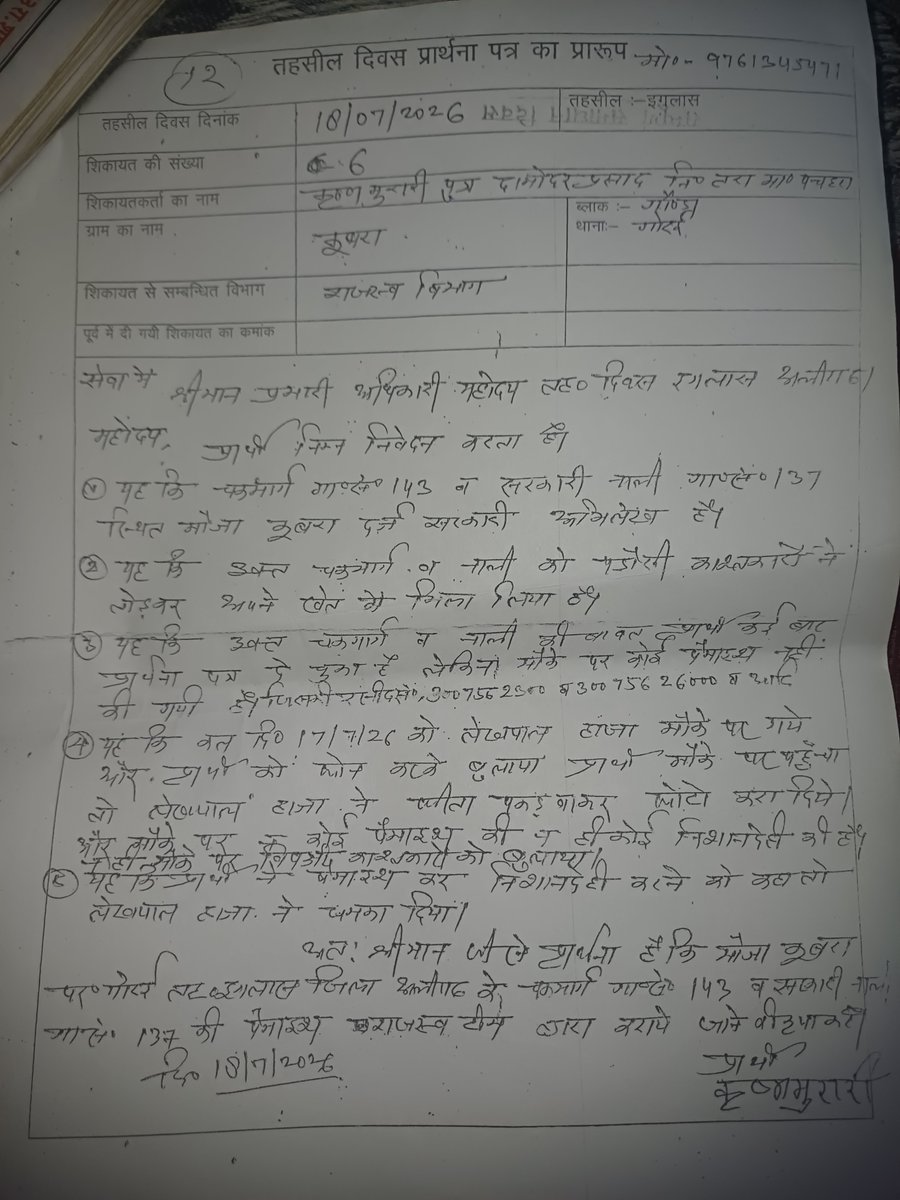 12
तहसील दिवस प्रार्थना पत्र का प्रारूप मो०- 9761345471
तहसील दिवस दिनांक 18/07/2026 तहसील :-इगलास
शिकायत की संख्या 6
शिकायतकर्ता का नाम कृष्ण मुरारी पुत्र दामोदर प्रसाद नि०
ग्राम का नाम कूबरा ब्लाक :- गौण्डा
थाना:- गोरई
शिकायत से सम्बन्धित विभाग राजस्व विभाग
पूर्व में दी गयी शिकायत का कमांक
सेवा में
श्रीमान प्रभारी अधिकारी महोदय तह० दिवस इगलास अलीगढ।
महोदय,
प्रार्थी निम्न निवेदन करता है।
(1) यह कि चकमार्ग गा०सं० 143 व सरकारी नाली गा०सं० 137
स्थित मौजा कूबरा दर्ज सरकारी अभिलेख है।
(2) यह कि उक्त चकमार्ग व नाली को पडौसी काश्तकारों ने
तोडकर अपने खेत में मिला लिया है।
(3) यह कि उक्त चकमार्ग व नाली की बावत प्रार्थी कई बार
प्रार्थना पत्र दे चुका है लेकिन मौके पर कोई पैमाइश नहीं
की गयी है। जिसकी रसीद सं० 30075626000 व आदि
(4) यह कि कल दि० 17/7/26 को लेखपाल हाजा मौके पर गये
और प्रार्थी को फोन करके बुलाया प्रार्थी मौके पर पहुँचा
तो लेखपाल हाजा ने फीता पकडवाकर फोटो करा दिये।
और मौके पर न कोई पैमाइश की न ही कोई निशानदेही की है।
न ही मौके पर विपक्षी काश्तकारों को बुलाया।
(5) यह कि प्रार्थी ने पैमाइश कर निशानदेही करने को कहा तो
लेखपाल हाजा ने धमका दिया।
अतः श्रीमान जी से प्रार्थना है कि मौजा कूबरा
पर० गोरई तह० इगलास जिला अलीगढ के चकमार्ग गा०सं० 143 व सरकारी नाली
गा०सं० 137 की पैमाइश राजस्व टीम द्वारा कराये जाने की कृपा करें।
दि० 18/7/2026
प्रार्थी
कृष्णमुरारी